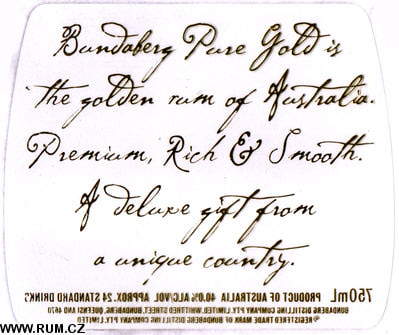 Bundaberg Pure Gold is
the golden rum of Australia.
Premium, Rich & Smooth.
A deluxe gift from
a unique country.
750mL PRODUCT OF AUSTRALIA 40.0% ALC/VOL APPROX. 24 STANDARD DRINKS
BUNDABERG DISTILLING COMPANY PTY. LIMITED. WHITTRED STREET, BUNDABERG, QUEENSLAND 4670
®REGISTERED TRADE MARK OF BUNDABERG DISTILLING COMPANY PTY. LIMITED
WWW.RUM.CZ